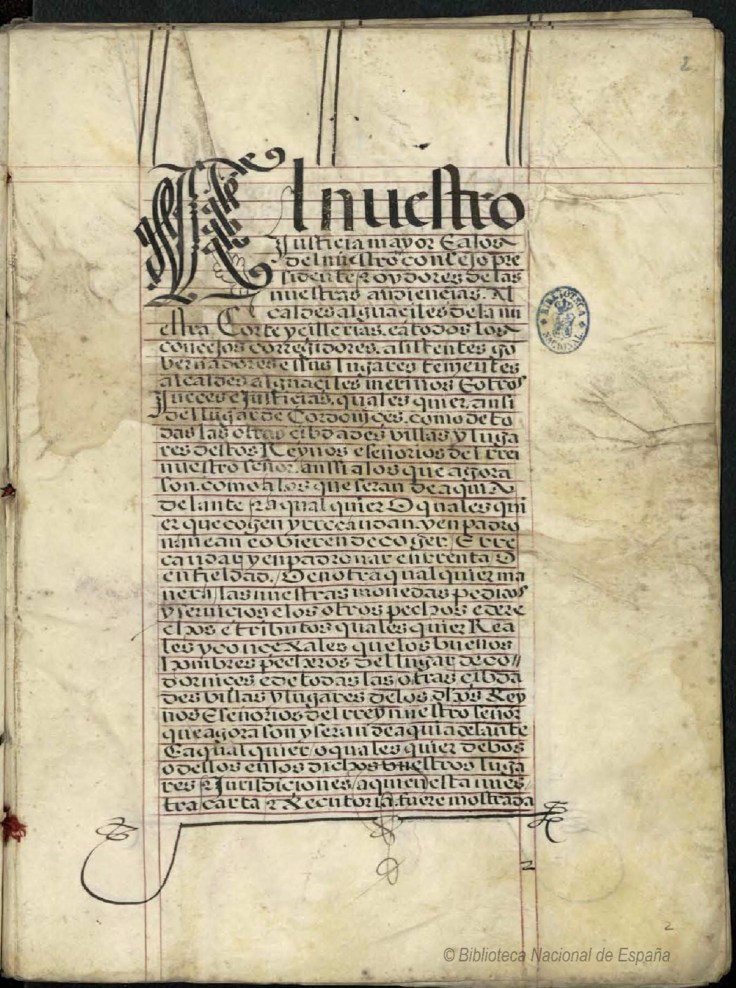 2
Al nuestro
Justicia mayor E alos
del nuestro conçejo pre
sidente E oydores de las
nuestras audiençias. Al
caldes alguaciles de la nu
estra Corte y cillerias. ea todos los
conçejos corregidores. asistentes go
bernadores e sus lugares tenientes
alcaldes alguaçiles merinos E otros
Jueçes e Justicias, quales quier, ansi
del lugar de Cordoniçes. como de to
das las otras çibdades villas y luga
res destos Reynos e señorios del rrei
nuestro señor. anssi alos que agora
son. como alos que seran de aqui A
delante E a qual quier O quales qui
er que cogen y rrecaudan. y enpadro
nan e an o ovieren de coger. E rre
caudar y enpadronar en rrenta O
en fieldad. / O en otra qual quier ma
nera / las nuestras monedas pedidos
y serviçios e los otros pechos e dere
chos e tributos quales quier Rea
les y conçexales que los buenos
hombres pecheros del lugar de co//
dorniçes e de todas las otras çibda
des villas y lugares de los dhos Rey
nos E señorios del rrey nuestro señor
que agora son y seran de aqui adelante
E a qual quier / o quales quier de bos
o dellos en los dichos vuestros luga
res E Jurisdiçiones / a quien esta nues
tra carta E xecutoria. fuere mostrada
2
BIBLIOTECA
NACIONAL
© Biblioteca Nacional de España